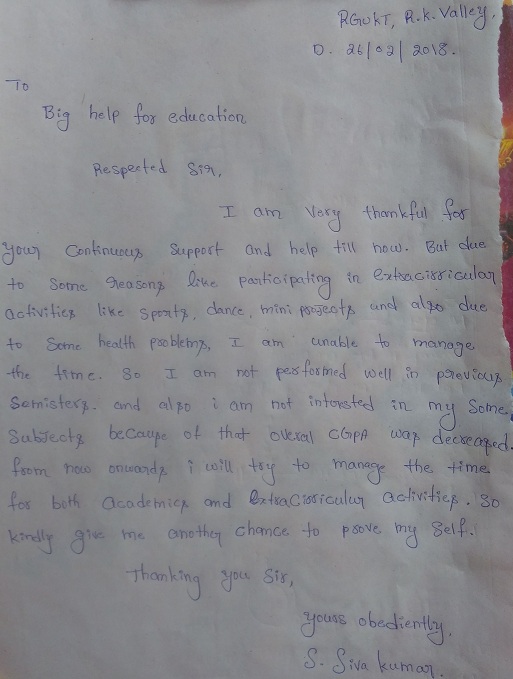 RGUKT, R.k. Valley,
D. 26/02/2018.
To
Big help for education
Respected Sir,
I am Very thankful for
your Continuous Support and help till now. But due
to Some reasons like participating in extracirricular
activities like sports, dance, mini projects and also due
to Some health problems, I am unable to manage
the time. So I am not performed well in previous
Semisters. and also i am not intersted in my Some
Subjects because of that overal CGPA was decreased.
from now onwards i will try to manage the time
for both academics and Extracirricular activities. So
kindly give me another chance to prove my Self.
Thanking you Sir,
yours obediently,
S. Siva kumar.